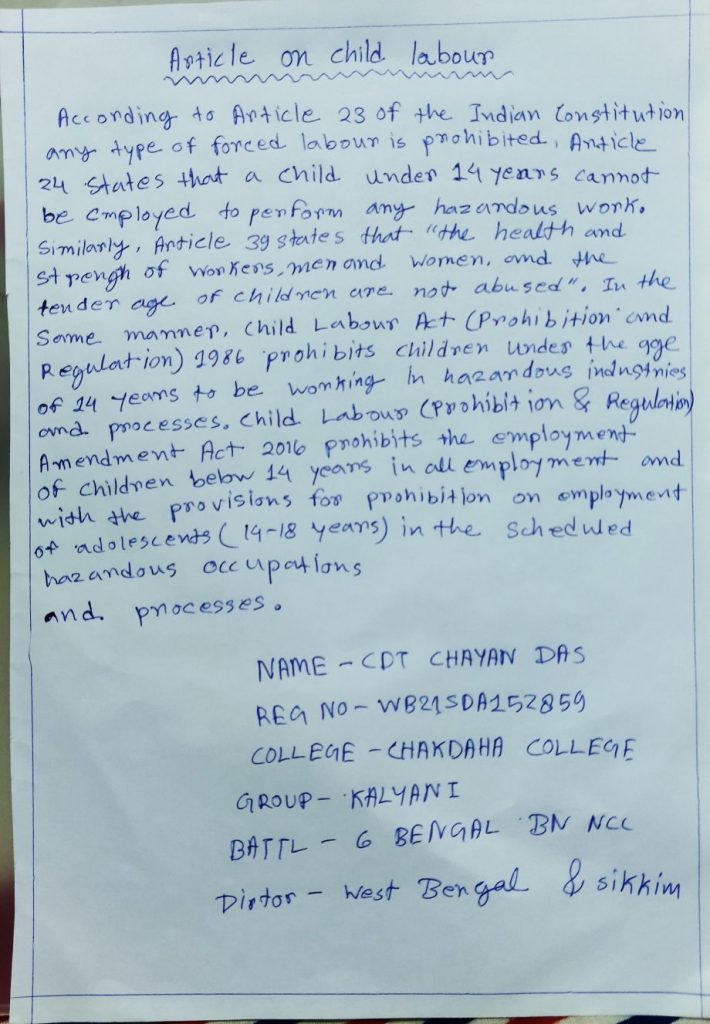 Article on child labour
According to Article 23 of the Indian Constitution
any type of forced labour is prohibited, Article
24 states that a child under 14 years cannot
be employed to perform any hazardous work.
Similarly, Article 39 states that "the health and
strengh of workers, men and women, and the
tender age of children are not abused". In the
Same manner, Child Labour Act (Prohibition and
Regulation) 1986 prohibits children under the age
of 14 years to be working in hazardous industries
and processes. Child Labour (Prohibition & Regulation)
Amendment Act 2016 prohibits the employment
of children below 14 years in all employment and
with the provisions for prohibition on employment
of adolescents (14-18 years) in the scheduled
hazardous occupations
and processes.
NAME - CDT CHAYAN DAS
REG NO - WB21SDA152859
COLLEGE - CHAKDAHA COLLEGE
GROUP - KALYANI
BATTL - 6 BENGAL BN NCC
Dirtor - West Bengal & sikkim